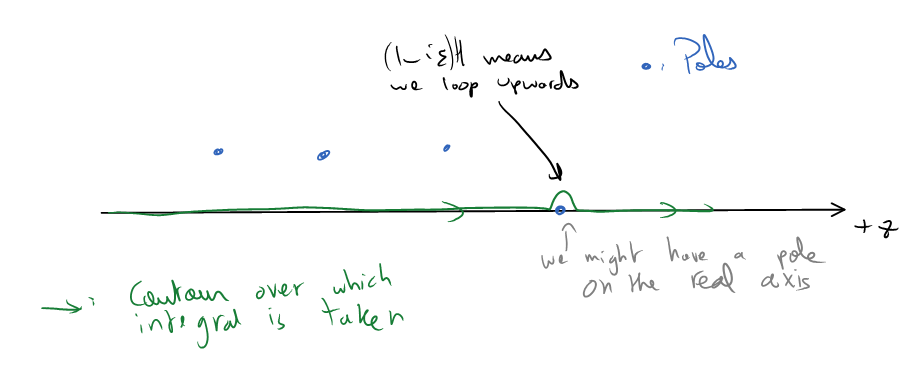 (1-iε)H means
we loop upwards
• : Poles
+z
we might have a pole
on the real axis
→ : Contour over which
integral is taken